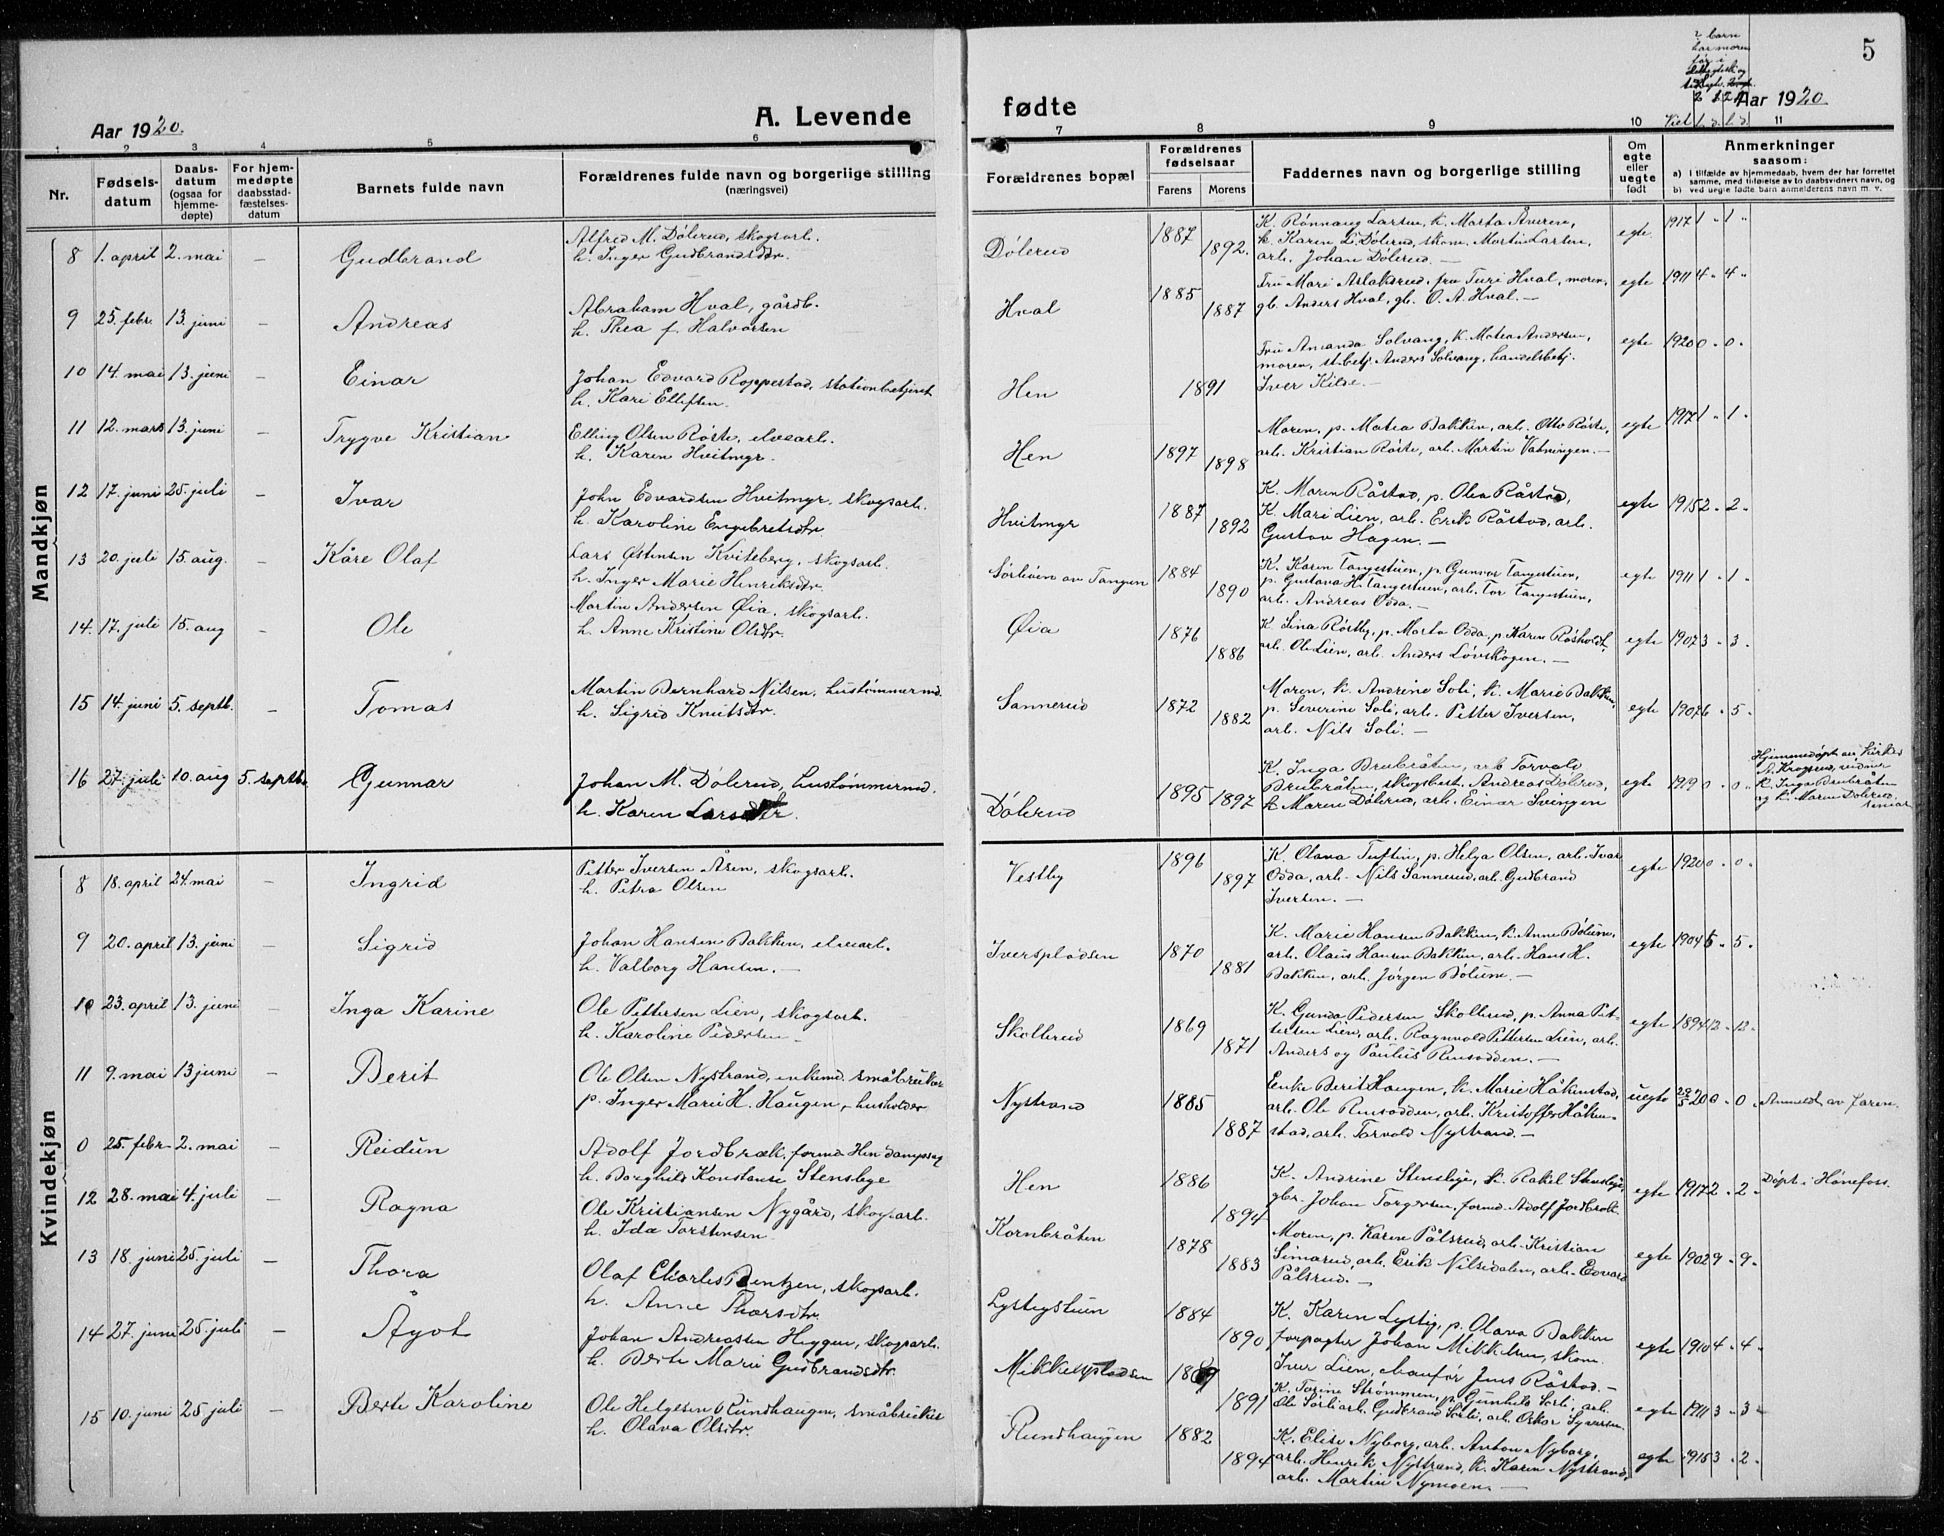 2 barn
har moren
før i
5
Aar 1920.
A. Levende
fødte
Aar 1920.
1 2 3 4 5 6
7 8 9 10 Viet l. d. l. d 11
Nr.
Fødsels-
datum
Daabs-
datum
(ogsaa for
hjemme-
døpte)
For hjem-
medøpte
daabsstad-
fæstelses-
datum
Barnets fulde navn
Forældrenes fulde navn og borgerlige stilling
(næringsvei)
Forældrenes bopæl
Forældrenes
fødselsaar
Farens Morens
Faddernes navn og borgerlige stilling
Om
egte
eller
uegte
født
Anmerkninger
saasom:
a) i tilfælde av hjemmedaab, hvem der har forrettet
samme, med tilføielse av to daabsvidners navn, og
b) ved uegte fødte barn anmelderens navn m. v.
Mandkjøn
8 1. april 2. mai – Gudbrand
Alfred M. Dølerud, skogsarb.
h. Inger Gudbrandsdtr.
Dølerud 1887 1892.
K. Rønnaug Larsen, k. Marta Averen,
k. Karen L. Dølerud, skom. Martin Larsen,
arb. Johan Dølerud. –
egte 1917 1 " 1 "
9 25. febr. 13. juni – Andreas
Abraham Hval, gårdb.
h. Thea f. Halvorsen
Hval 1885 1887
Fru Mari Aslaksrud, fru Turi Hval, moren,
gb. Anders Hval, gb. O. A. Hval. –
egte 1911 4 " 4 "
10 14. mai 13. juni – Einar
Johan Edvard Roppestad, stationbetjent
h. Kari Ellefsen.
Hen 1891
Fru Amanda Solvang, k. Matea Andersen,
moren, st.betj. Anders Solvang, handelsbetj.
Iver Kilde. –
egte 1920 0 " 0 "
11 12. mars 13. juni – Trygve Kristian
Elling Olsen Røste, elvearb.
h. Karen Hvitmyr.
Hen 1897 1898
Moren, p. Matea Bakken, arb. Otto Røste,
arb. Kristian Røste, arb. Martin Vatningen. –
egte 1917 1 " 1 "
12 17. juni 25. juli – Ivar
John Edvardsen Hvitmyr, skogsarb.
h. Karoline Engebretsdtr
Hvitmyr 1887 1892
K. Maren Råstad, p. Olea Råstad,
K. Mari Lien, arb. Erik Råstad, arb.
Gustav Hagen. –
egte 1915 2 " 2 "
13 20. juli 15. aug. – Kåre Olaf
Lars Østensen Kviteberg, skogsarb.
h. Inger Marie Henriksdtr.
Sørbøen av Tangen 1884 1890
K. Karen Tangestuen, p. Gunvor Tangestuen,
p. Gustava H. Tangestuen, arb. Tor Tangestuen,
arb. Andreas Odda. –
egte 1911 1 " 1 "
14. 17. juli 15. aug – Ole
Martin Andersen Øia, skogsarb.
h. Anne Kristine Olsdtr.
Øia 1876 1886
K Sina Røstby, p. Marta Odda, p Karen Røsholdt,
arb. Ole Lien, arb. Anders Løvskogen. –
egte 1907 3 " 3 "
15 14. juni 5. septb. – Tomas
Martin Bernhard Nilsen, hustømmermd.
h. Sigrid Knutsdtr.
Sannerud 1872 1882
Moren, k. Andrine Soli, k. Marie Bakken,
p. Severine Soli, arb. Petter Iversen,
arb. Nils Soli. –
egte 1907 6 " 5 "
16 27. juli 10. aug 5. septb. Gunnar
Johan M. Dølerud, hustømmermd.
h. Karen Larsdtr.
Dølerud 1895 1897
K. Inga Brubråten, arb Torvald
Brubråten, skogsbest. Andreas Dølerud,
k Maren Dølerud, arb. Einar Svingen
egte 1919 0 " 0 "
Hjemmedøpt av kirkes.
A. Krogsrud, vidner
k. Inga Brubråten
og k. Maren Dølerud
senior
Kvindekjøn
8 18. april 24. mai – Ingrid
Petter Iversen Åsen, skogsarb.
h. Petra Olsen
Vestby 1896 1897
K. Olava Tuftin, p. Helga Olsen, arb. Ivar
Odda, arb. Nils Sannerud, arb. Gudbrand
Iversen. –
egte 1920 0 " 0 "
9 20. april 13. juni – Sigrid
Johan Hansen Bakken, elvearb.
h. Valborg Hansen. –
Iversplassen 1870 1881
K. Marie Hansen Bakken, k. Anne Bølum,
arb. Olaus Hansen Bakken, arb. Hans H.
Bakken, arb. Jørgen Bølum. –
egte 1904 5 " 5 "
10 23. april 13. juni – Inga Karine
Ole Pettersen Lien, skogsarb.
h. Karoline Pedersen
Skollerud 1869 1871
K. Gunda Pedersen Skollerud, p. Anna Pet-
tersen Lien, arb. Ragnvald Pettersen Lien, arb.
Anders og Paulus Rusodden. –
egte 1894 12 " 12 "
11 9. mai 13 juni – Berit
Ole Olsen Nystrand, enkemd. småbruker
p. Inger Marie H. Haugen, husholder
Nystrand 1885 1887
Enke Berit Haugen, k. Marie Håkenstad,
arb. Ole Rusodden, arb. Kristoffer Håken-
stad, arb. Torvald Nystrand. –
uegte 29/5 20 0 " 0 " Anmeldt av faren.
0 25. febr. 2. mai – Reidun
Adolf Jordbræk, formd Hen dampsag
h. Borghild Konstanse Stenslyge
Hen 1886 1894
K. Andrine Stenslyge, k. Rakel Stenslyge,
gbr. Johan Torgersen, formd. Adolf Jordbræk
egte 1917 2 " 2 " Døpt i Hønefoss.
12 28. mai 4. juli – Ragna
Ole Kristiansen Nygård, skogsarb.
h. Ida Torstensen
Kornbråten 1878 1883
Moren, p. Karen Pålsrud, arb. Kristian
Simarud, arb. Erik Nilsedalen, arb. Edvard
Pålsrud. –
egte 1902 9 " 9 "
13 18. juni 25. juli – Thora
Olaf Charles Bentzen, skogsarb.
h. Anne Thorsdtr.
Lystigstuen 1884 1890
K. Karen Lystig, p. Olava Bakken
forpagter Johan Mikkelsen, skom.
Iver Lien, chaufør Jens Råstad. –
egte 1910 4 " 4 "
14 27. juni 25. juli – Ågot
Johan Andreassen Heggen, skogsarb.
h. Berte Marie Gudbrandsdtr.
Mikkelsplassen 1889 1891
K. Torine Strømmen, p. Gunhild Sørli, arb.
Ole Sørli arb. Gudbrand Sørli, arb. Oskar Syversen
egte 1911 3 " 3 "
15 10. juni 25 juli – Berte Karoline
Ole Helgesen Rundhaugen, småbruker
h. Olava Olsdtr.
Rundhaugen 1882 1894
K. Elise Nyborg, arb. Anton Nyborg,
arb. Henrik Nystrand, k. Karen Nystrand,
arb. Martin Nymoen. –
egte 1915 3 " 2 "